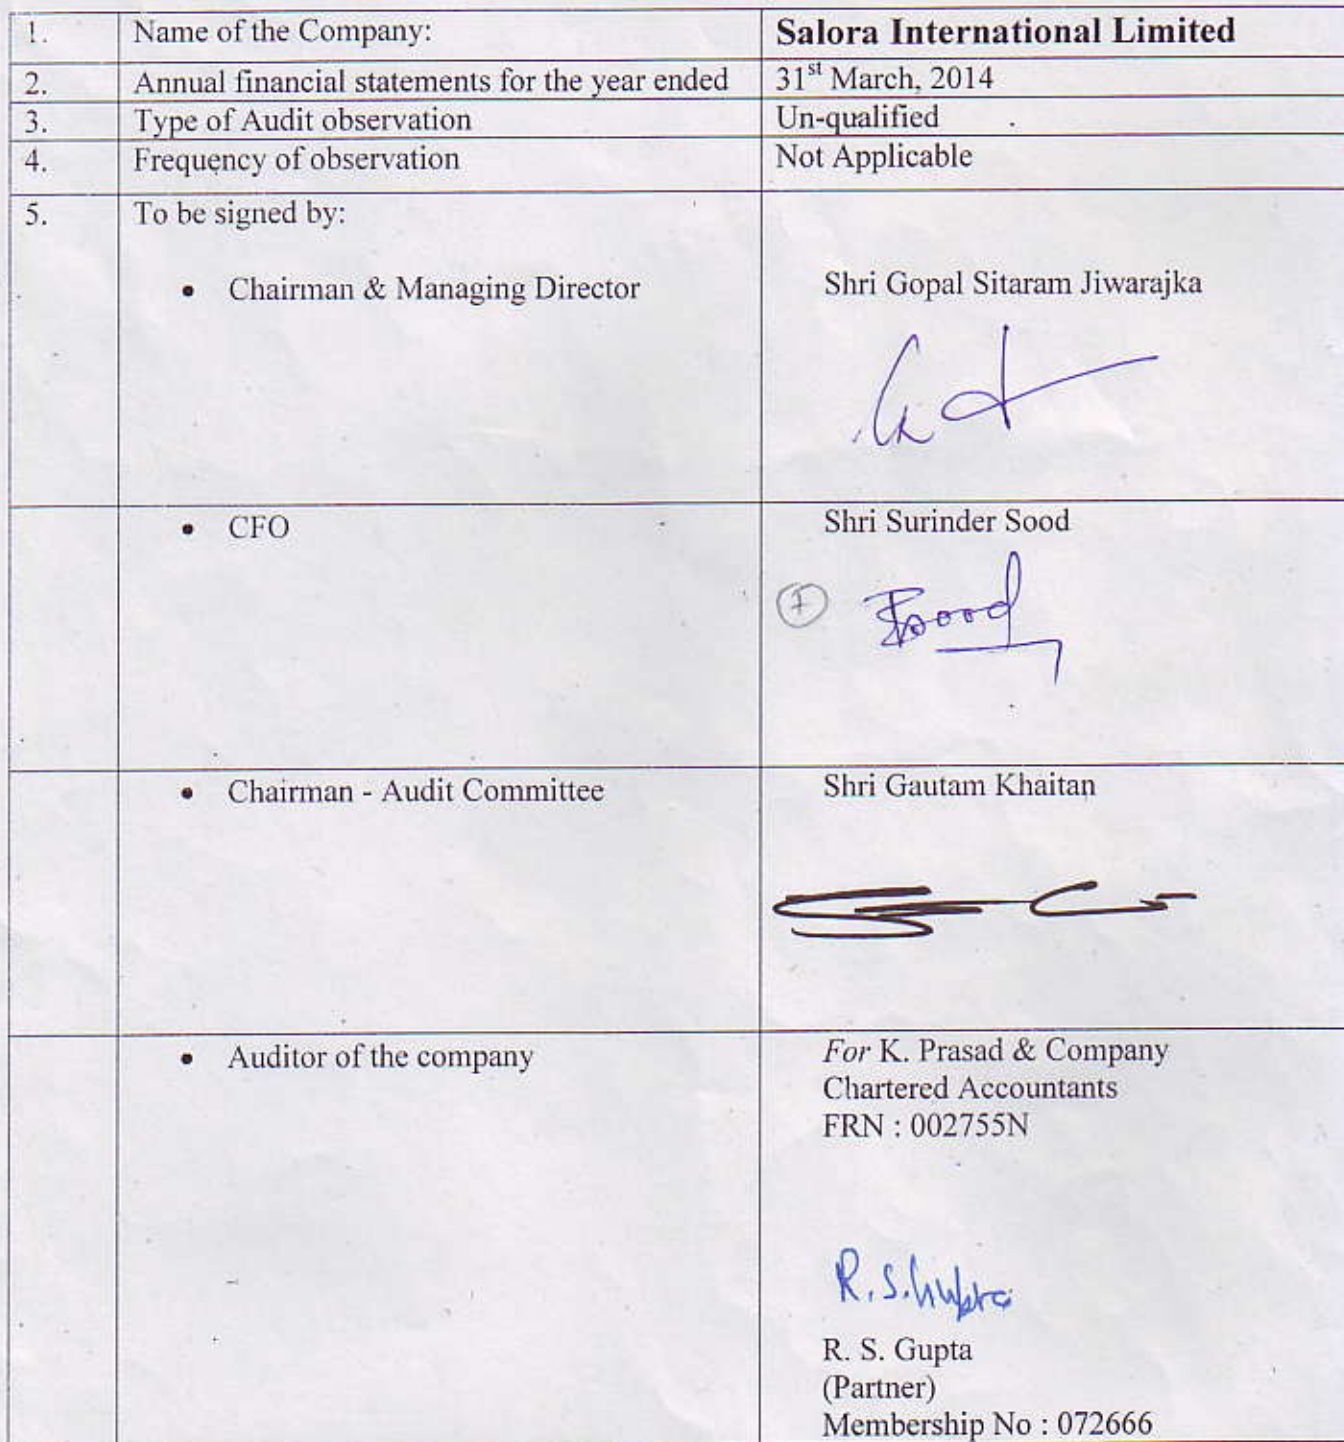 1. Name of the Company: Salora International Limited
2. Annual financial statements for the year ended 31st March, 2014
3. Type of Audit observation Un-qualified
4. Frequency of observation Not Applicable
5. To be signed by:
• Chairman & Managing Director Shri Gopal Sitaram Jiwarajka
• CFO Shri Surinder Sood
Sood
• Chairman - Audit Committee Shri Gautam Khaitan
• Auditor of the company For K. Prasad & Company
Chartered Accountants
FRN : 002755N
R. S. Gupta
R. S. Gupta
(Partner)
Membership No : 072666